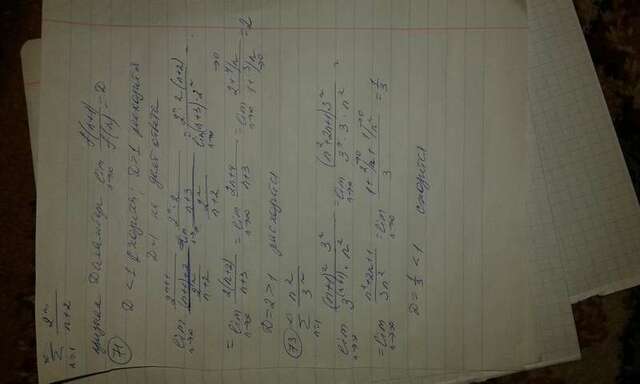 ∞
Σ 2ⁿ/(n+2)
n=1
71 признак Даламбера lim n→∞ f(n+1)/f(n) = D
D < 1 сходится; D > 1 расходится
D = 1 не дает ответа
lim n→∞ = lim n→∞ (2ⁿ·2/(n+3))/(2ⁿ/(n+2)) = lim n→∞ 2ⁿ·2(n+2)/((n+3)·2ⁿ) =
= lim n→∞ 2(n+2)/(n+3) = lim n→∞ (2n+4)/(n+3) = lim n→∞ (2+4/n)/(1+3/n) = 2
D = 2 > 1 расходится
73 Σ n=1 n²/3ⁿ
lim n→∞ (n+1)²·3ⁿ/(3⁽ⁿ⁺¹⁾·n²) = lim n→∞ (n²+2n+1)3ⁿ/(3ⁿ·3·n²) =
= lim n→∞ (n²+2n+1)/(3n²) = lim n→∞ (1+2/n+1/n²)/3 = 1/3
D = 1/3 < 1 сходится